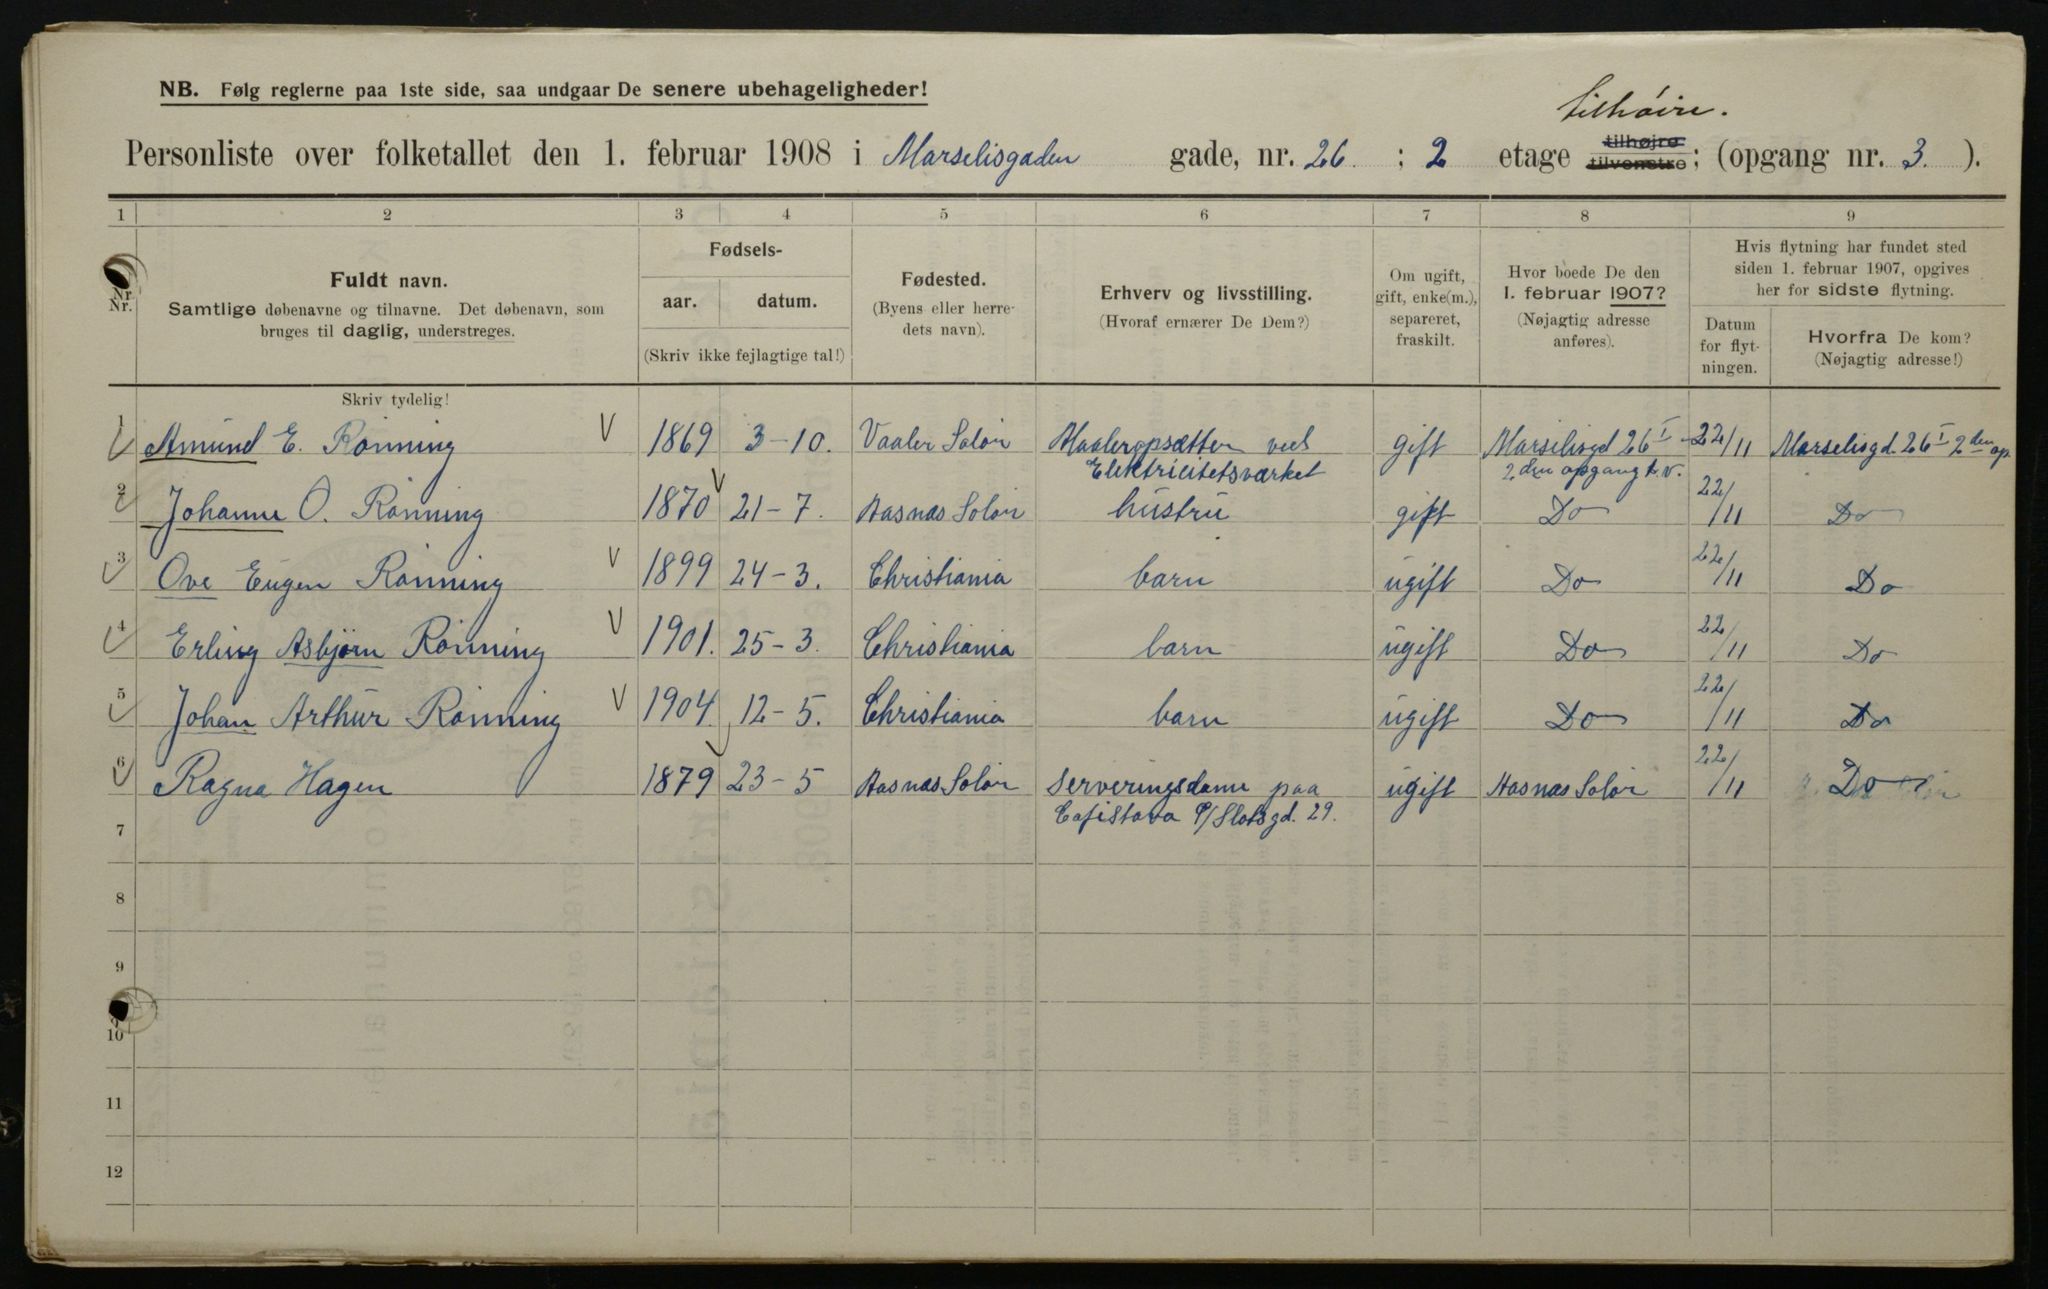 NB. Følg reglerne paa 1ste side, saa undgaar De senere ubehageligheder!
tilhøire.
Personliste over folketallet den 1. februar 1908 i Marselisgaden gade, nr. 26 ; 2 etage tilhøjre tilvenstre; (opgang nr. 3. ).
1 2 3 4 5 6 7 8 9
Nr.
Fuldt navn.
Samtlige døbenavne og tilnavne. Det døbenavn, som
bruges til daglig, understreges.
Skriv tydelig!
Fødsels-
aar. datum.
(Skriv ikke fejlagtige tal!)
Fødested.
(Byens eller herre-
dets navn).
Erhverv og livsstilling.
(Hvoraf ernærer De Dem?)
Om ugift,
gift, enke(m.),
separeret,
fraskilt.
Hvor boede De den
1. februar 1907?
(Nøjagtig adresse
anføres).
Hvis flytning har fundet sted
siden 1. februar 1907, opgives
her for sidste flytning.
Datum
for flyt-
ningen.
Hvorfra De kom?
(Nøjagtig adresse!)
1 Amund E. Rønning 1869 3-10. Vaaler Solør Maaleropsætter ved gift Marselisgd 26 I 22/11 Marselisgd. 26 I 2den op.
Elektricitetsværket 2den opgang t.v.
2 Johanne O. Rønning 1870 21-7. Aasnas Solør hustru gift Do 22/11 Do
3 Ove Eugen Rønning 1899 24-3. Christiania barn ugift Do 22/11 Do
4 Erling Asbjørn Rønning 1901. 25-3. Christiania barn ugift Do 22/11 Do
5 Johan Arthur Rønning 1904. 12-5. Christiania barn ugift Do 22/11 Do
6 Ragna Hagen 1879 23-5 Aasnas Solør Serveringsdame paa ugift Aasnas Solør 22/11 Do
Cafistova /Slotsgd. 29.
7
8
9
10
11
12